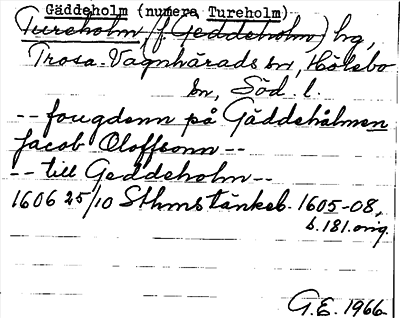 Gäddeholm (numera Tureholm)
Tureholm (f. Geddeholm) hg,
Trosa-Vagnhärads sn, Hölebo
hd, Söd. l.
-- fougdenn på Gäddehålmen
Jacob Oloffsonn --
-- till Geddeholm --
1606 25/10 Sthms tänkeb. 1605-08,
s. 181. orig.
G.E. 1966